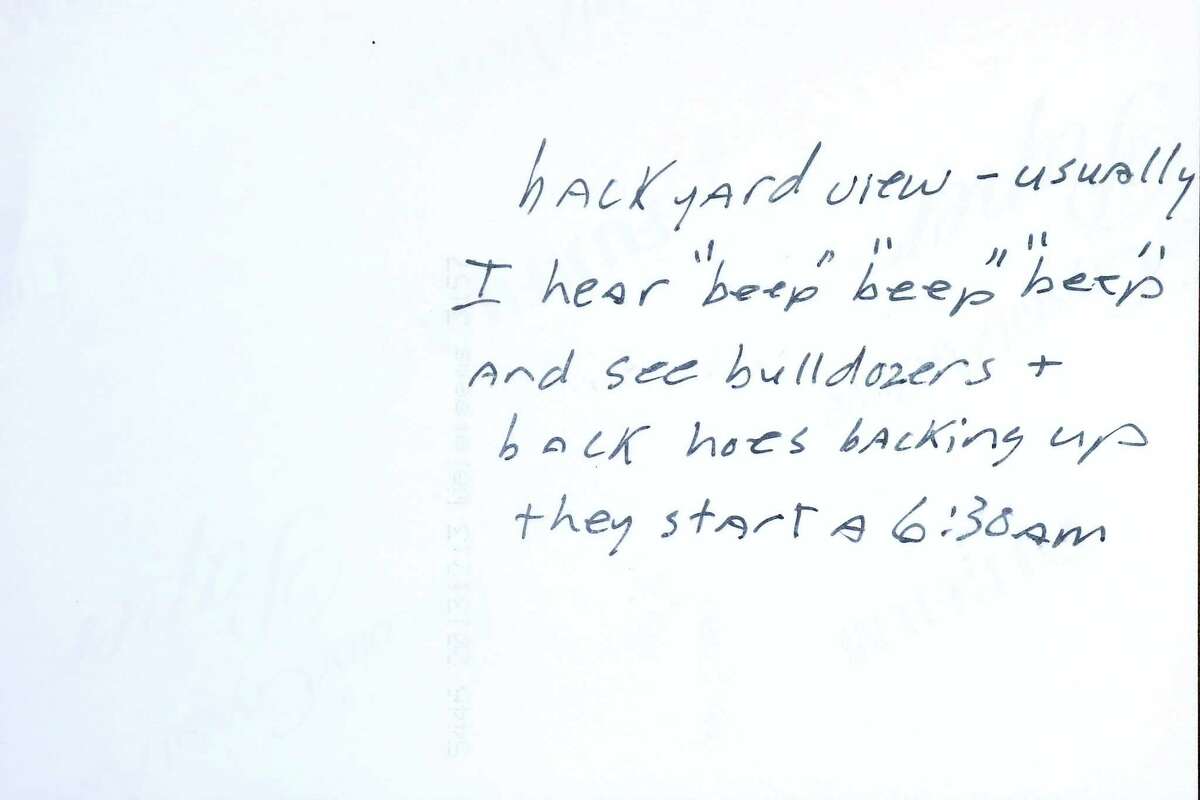 backyard view - usually
I hear "beep" "beep" "beep"
and see bulldozers +
back hoes backing up
they start a 6:30am